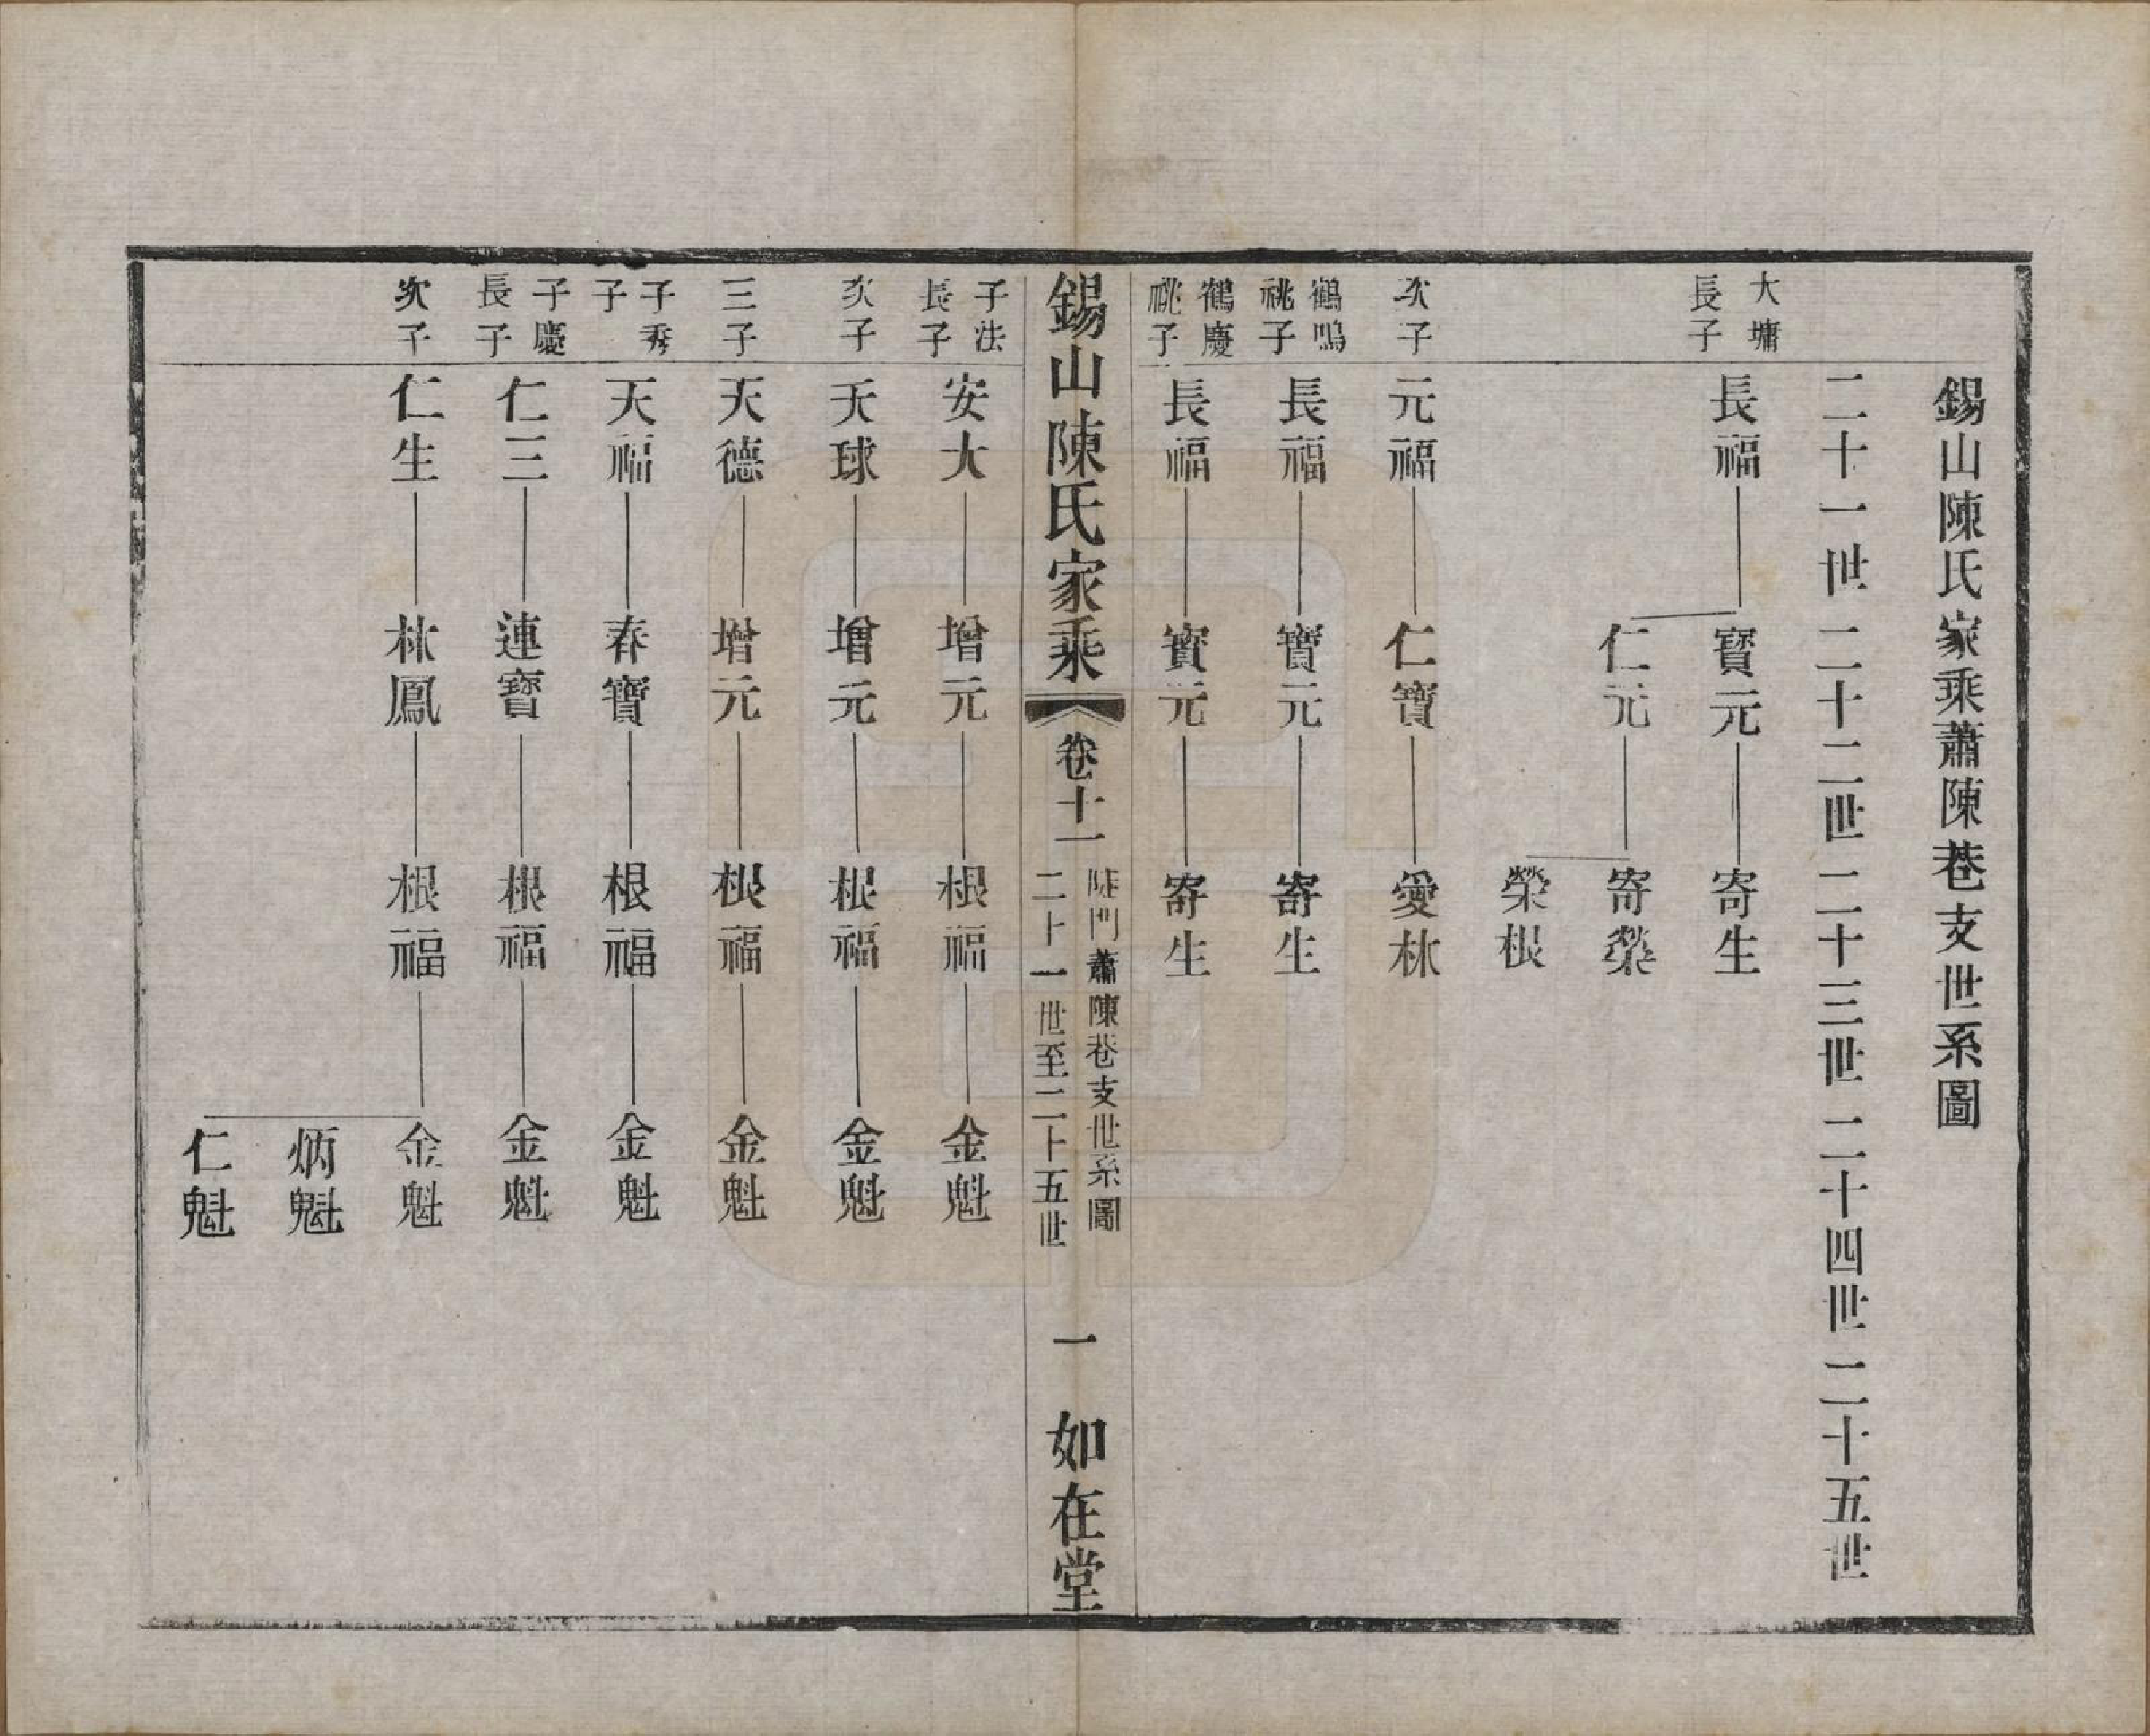 錫山陳氏家乘蕭陳巷支世系圖
二十一世 二十二世 二十三世 二十四世 二十五世
大墉
長子
長福 寶元 寄生
仁元 寄榮
榮根
次子
元福 仁寶 愛林
鶴鳴
祧子
長福 寶元 寄生
鶴慶
祧子
長福 寶元 寄生
錫山陳氏家乘 卷十一
陡門蕭陳巷支世系圖
二十一世至二十五世
一
如在堂
子法
長子
安大 增元 根福 金魁
次子
天球 增元 根福 金魁
三子
天德 增元 根福 金魁
子秀
子
天福 春寶 根福 金魁
子慶
長子
仁三 連寶 根福 金魁
次子
仁生 林鳳 根福 金魁
炳魁
仁魁